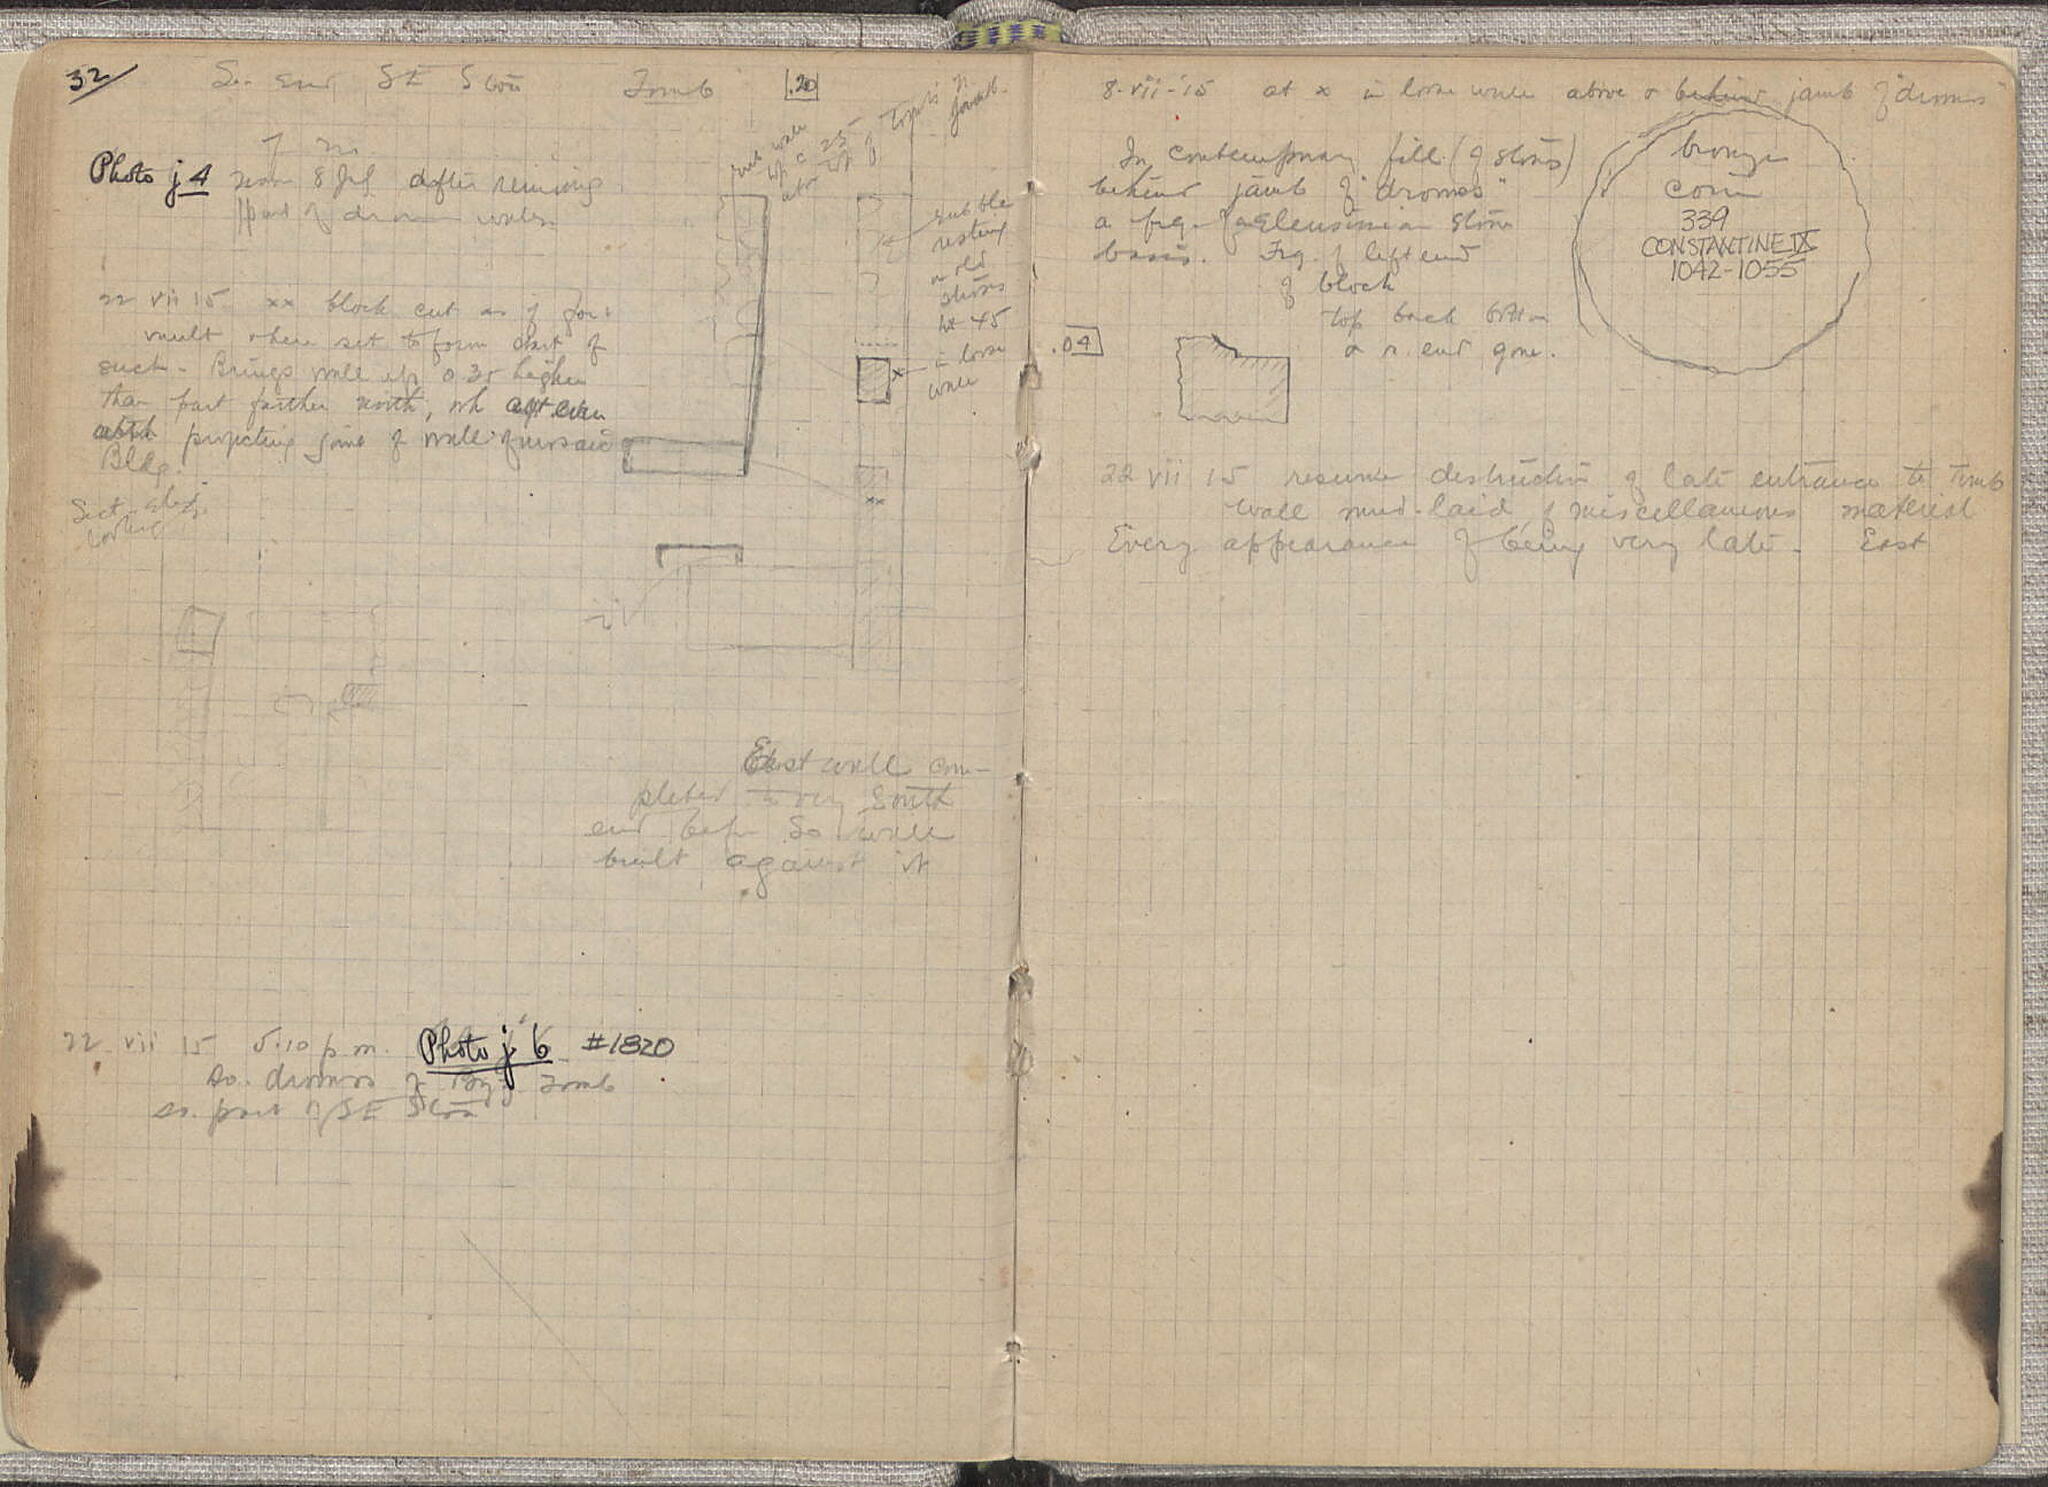 32
So. end SE Stoa Tomb .20
Photo j 4 noon 8 Jul after removing
part of wall
22 vii 15 xx block cut as if for
vault where set to form part of
such - Brings wall up 0.35 higher
than part farther north, wh
projecting of wall of mosaic
Bldg.
Sect.
looking
tomb wall
of top
jamb.
rubble
resting
old
stones
ht 45
in loose
wall
East wall com-
pleted to very South
end before So wall
built against it
22 vii 15 5.10 p m. Photo j 6 #1820
So. dromos of Byz Tomb
So. part of SE Stoa
8-vii-15 at x in loose wall above & behind jamb of "dromos"
In contemporary fill (of stones)
behind jamb of "dromos"
a frg. of Eleusinian stone
basis. Frg. of left end
of block
top back bottom
& r. end gone.
.04
bronze
coin
339
CONSTANTINE IX
1042-1055
22 vii 15 resume destruction of late entrance to Tomb
wall mud-laid, of miscellaneous material
Every appearance of being very late. East